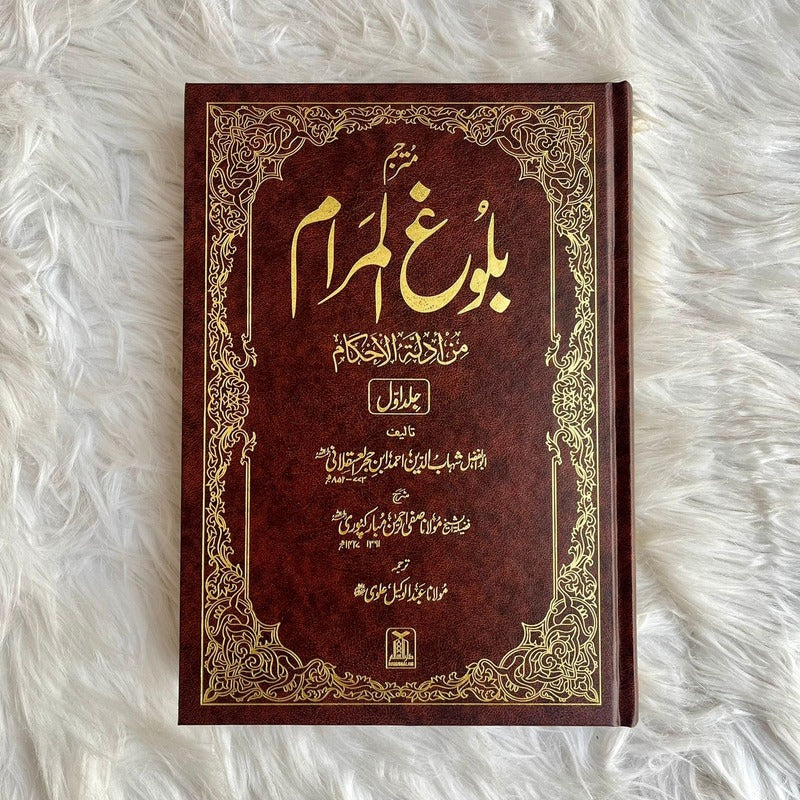 مترجم
بلُوغ المَرام
مِن أدلة الأحكام
جلد اوّل
تالیف
ابوالفضل شہابُ الدّین احمد ابنِ حجر العسقلانی
۷۷۳ – ۸۵۲ھ
شرح
فضیلۃ الشیخ مَولانا صفی الرحمٰن مُبارکپُوری
ترجمہ
مَولانا عبدالوکیل علوی
DARUSSALAM